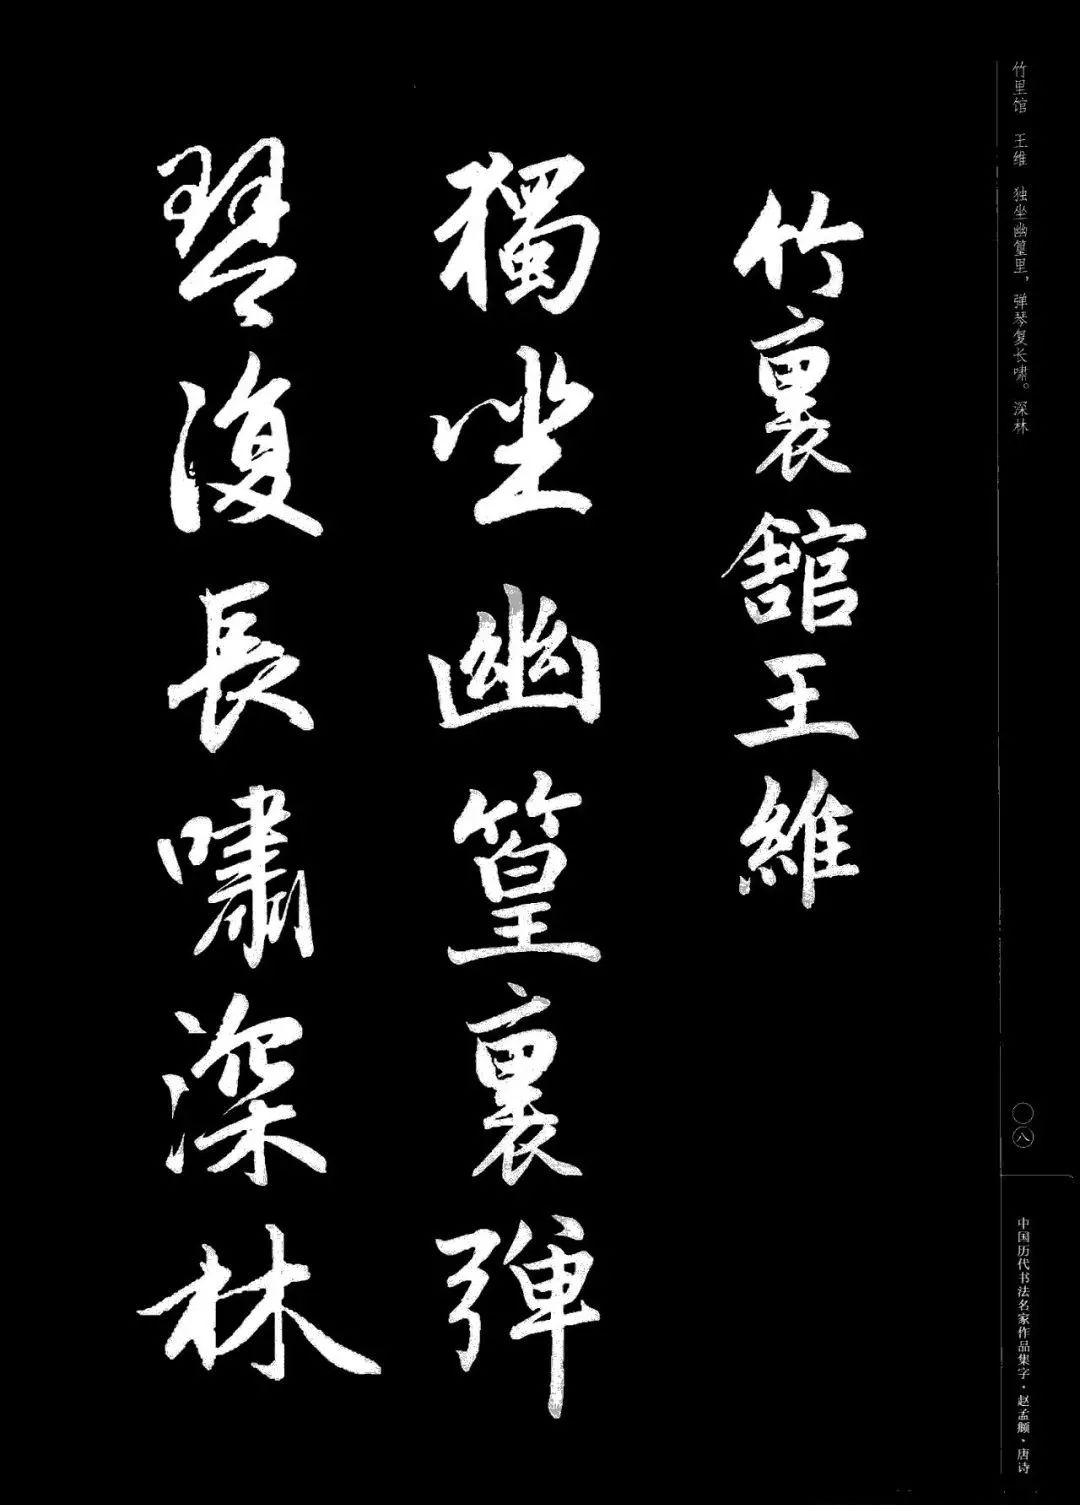 竹里馆　王维　独坐幽篁里，弹琴复长啸。深林
竹裏館王維
獨坐幽篁裏彈
琴復長嘯深林
〇八
中国历代书法名家作品集字·赵孟頫·唐诗